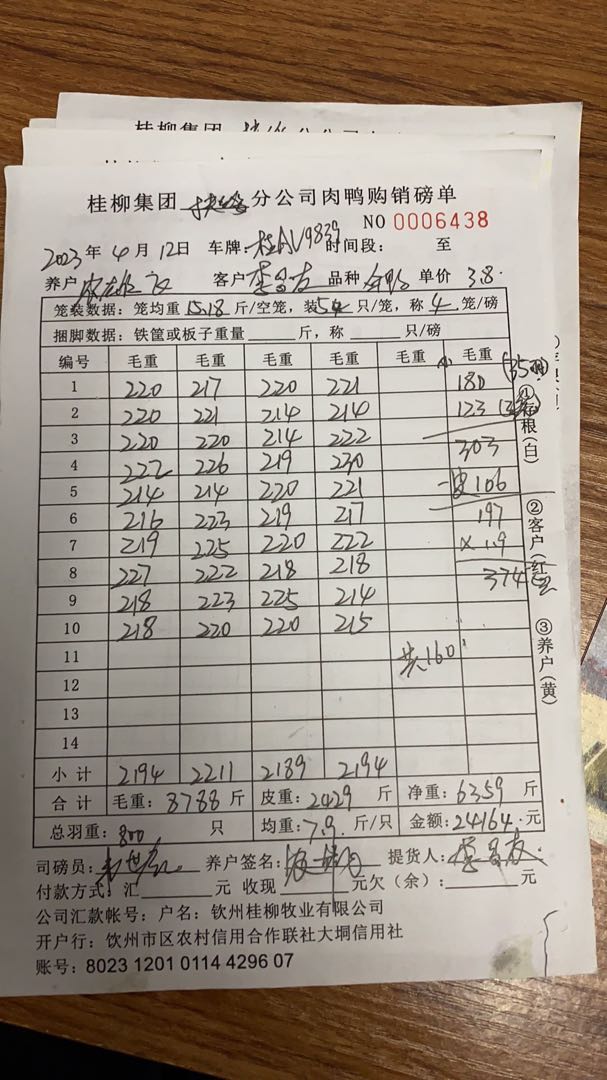 桂柳集团 分公司肉鸭购销磅单
NO 0006438
2023年4月12日 车牌:桂AV9839 时间段: 至
养户 客户 李名友 品种 单价 3.8
笼装数据:笼均重15.18斤/空笼,装5只/笼,称4笼/磅
捆脚数据:铁筐或板子重量 斤,称 只/磅
编号 毛重 毛重 毛重 毛重 毛重 毛重
1 220 217 220 221 180
2 220 221 214 214 123
3 220 220 214 222 303
4 222 226 219 230
5 214 214 220 221 -皮106
6 216 223 219 217 197
7 219 225 220 222 ×1.9
8 227 222 218 218 374
9 218 223 225 214
10 218 220 220 215
11 共160
12
13
14
小计 2194 2211 2189 2194
合计 毛重:8788斤 皮重:2429斤 净重:6359斤
总羽重:800只 均重:7.9斤/只 金额:24164元
司磅员: 养户签名: 提货人:李名友
付款方式:汇 元 收现 元欠(余): 元
公司汇款帐号:户名:钦州桂柳牧业有限公司
开户行:饮州市区农村信用合作联社大垌信用社
账号:8023 1201 0114 4296 07
①存根(白)
②客户(红)
③养户(黄)
桂柳集团